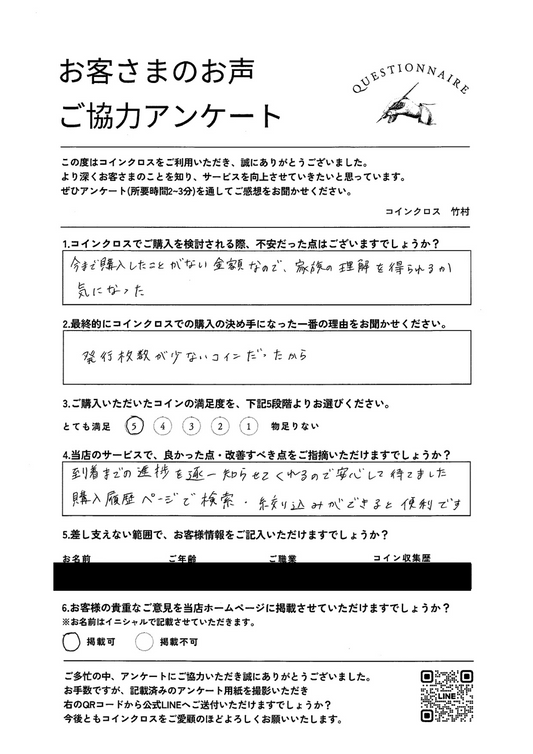 お客さまのお声
ご協力アンケート
QUESTIONNAIRE
この度はコインクロスをご利用いただき、誠にありがとうございました。
より深くお客さまのことを知り、サービスを向上させていきたいと思っています。
ぜひアンケート(所要時間2~3分)を通してご感想をお聞かせください。
コインクロス 竹村
1.コインクロスでご購入を検討される際、不安だった点はございますでしょうか?
今まで購入したことがない金額なので、家族の理解を得られるか
気になった
2.最終的にコインクロスでの購入の決め手になった一番の理由をお聞かせください。
発行枚数が少ないコインだったから
3.ご購入いただいたコインの満足度を、下記5段階よりお選びください。
とても満足 5 4 3 2 1 物足りない
4.当店のサービスで、良かった点・改善すべき点をご指摘いただけますでしょうか?
到着までの進捗を逐一知らせてくれるので安心して待てました
購入履歴ページで検索・絞り込みができると便利です
5.差し支えない範囲で、お客様情報をご記入いただけますでしょうか?
お名前 ご年齢 ご職業 コイン収集歴
6.お客様の貴重なご意見を当店ホームページに掲載させていただけますでしょうか?
※お名前はイニシャルで記載させていただきます。
掲載可 掲載不可
ご多忙の中、アンケートにご協力いただき誠にありがとうございました。
お手数ですが、記載済みのアンケート用紙を撮影いただき
右のQRコードから公式LINEへご送付いただけますでしょうか?
今後ともコインクロスをご愛顧のほどよろしくお願いいたします。
LINE